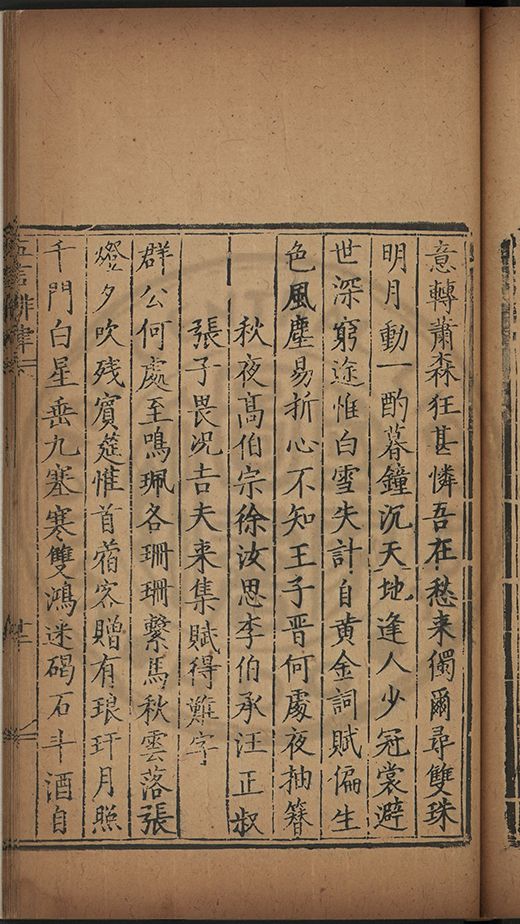 意轉蕭森狂甚憐吾在愁来獨爾尋雙珠
明月動一酌暮鐘沉天地逢人少冠裳避
世深窮途惟白雪失計自黃金詞賦偏生
色風塵易折心不知王子晉何處夜抽簪
秋夜高伯宗徐汝思李伯承汪正叔
張子畏况吉夫来集賦得難字
群公何處至鳴珮各珊珊繫馬秋雲落張
燈夕吹殘賓筵惟首蓿客贈有琅玕月照
千門白星垂九塞寒雙鴻迷碣石斗酒自
五言排律